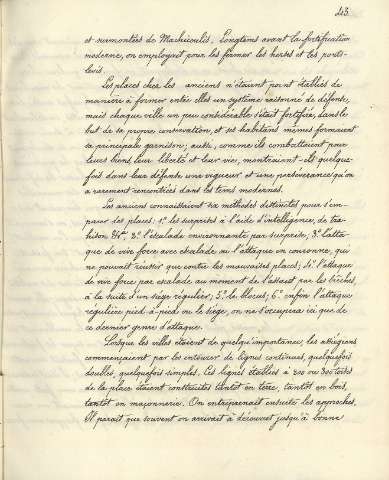 243
et surmontées de Machicoulis. Longtems avant la fortification
moderne, on employait pour les fermer les herses et les ponts-
levis.
Les places chez les anciens n'étaient point établies de
manière à former entr'elles un système raisonné de défense,
mais chaque ville un peu considérable s'était fortifiée, dans le
but de sa propre conservation, et ses habitans mêmes formaient
sa principale garnison; aussi, comme ils combattaient pour
leurs biens, leur liberté et leur vies, montraient-ils quelque-
fois dans leur défense une vigueur et une persévérance qu'on
a rarement rencontrées dans les tems modernes.
Les anciens connaissaient six méthodes distinctes pour s'em-
parer des places; 1° les surprises à l'aide d'intelligence, de tra-
hison &a; 2° l'escalade environnante par surprise; 3° l'atta-
que de vive force avec escalade ou l'attaque en couronne, qui
ne pouvait réussir que contre les mauvaises places; 4° l'attaque
de vive force par escalade au moment de l'assaut par les brèches,
à la suite d'un siège régulier; 5° le blocus; 6° enfin l'attaque
régulière pied-à-pied ou le siège, on ne s'occupera ici que de
ce dernier genre d'attaque.
Lorsque les villes étaient de quelqu'importance, les assiégeans
commençaient par les entourer de lignes continues, quelquefois
doubles, quelquefois simples. Ces lignes établies à 200 ou 300 toises
de la place étaient construites tantôt en terre, tantôt en bois,
tantôt en maçonnerie. On entreprenait ensuite les approches.
Il paraît que souvent on arrivait à découvert jusqu'à bonne